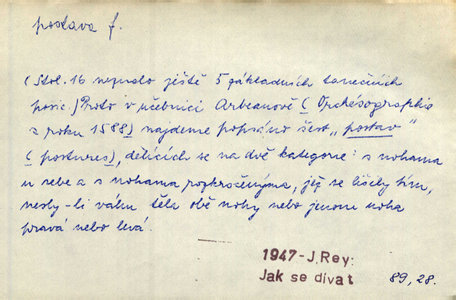 postava f.
(Stol. 16 neznalo ještě 5 základních tanečních
posic) Proto v učebnici Arbeauově (Orchésographie
z roku 1588) najdeme popsáno šest „postav"
(postures), dělících se na dvě kategorie: s nohama
u sebe a s nohama rozkročenýma, jež se lišily tím,
nesly-li váhu těla obě nohy nebo jenom noha
pravá nebo levá.
1947-J.Rey:
Jak se dívat
89,28.